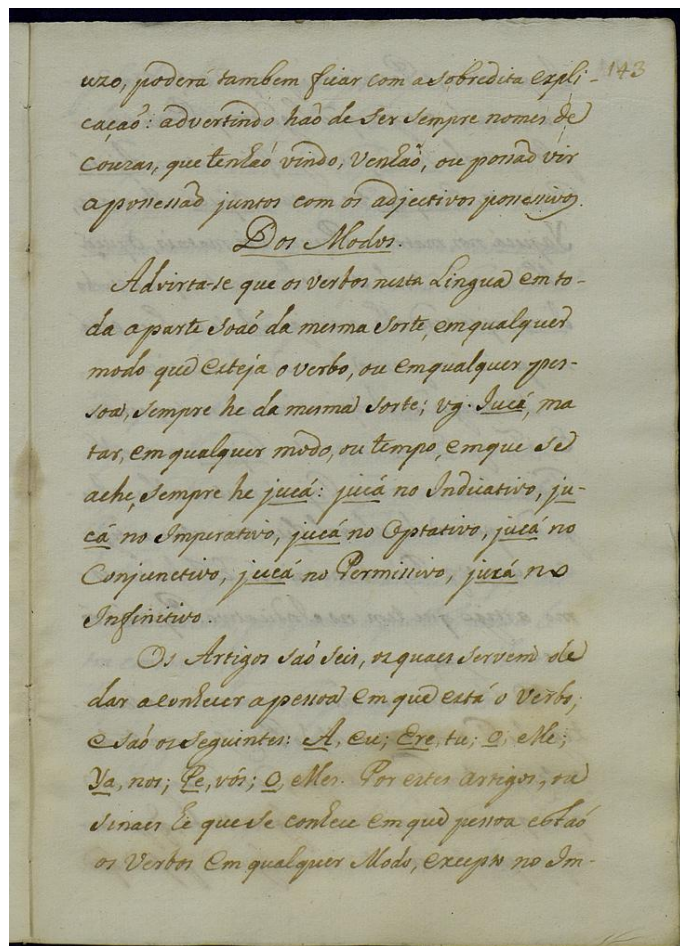 uzo, poderá tambem ficar com a sobredita expli-
143
caçaõ: advertindo haõ de ser sempre nomes de
couzas, que tenhaõ vindo, venhaõ, ou possaõ vir
a possessaõ juntos com os adjectivos possessivos.
Dos Modos.
Advirta-se que os verbos nesta Lingua em to-
da a parte soaõ da mesma sorte, em qualquer
modo que esteja o verbo, ou em qualquer pes-
soa, sempre he da mesma sorte; vg. Jucá, ma
tar, em qualquer modo, ou tempo, em que se
ache, sempre he jucá: jucá no Indicativo, ju-
cá no Imperativo, jucá no Optativo, jucá no
Conjunctivo, jucá no Permissivo, jucá no
Infinitivo.
Os Artigos saõ seis, os quaes servem de
dar a conhecer a pessoa em que está o verbo;
e saõ os seguintes: A, eu; Ere, tu; O, elle;
Ya, nos; Pe, vós; O, elles. Por estes artigos, ou
sinaes he que se conhece em que pessoa estaõ
os Verbos em qualquer Modo, excepto no Im-